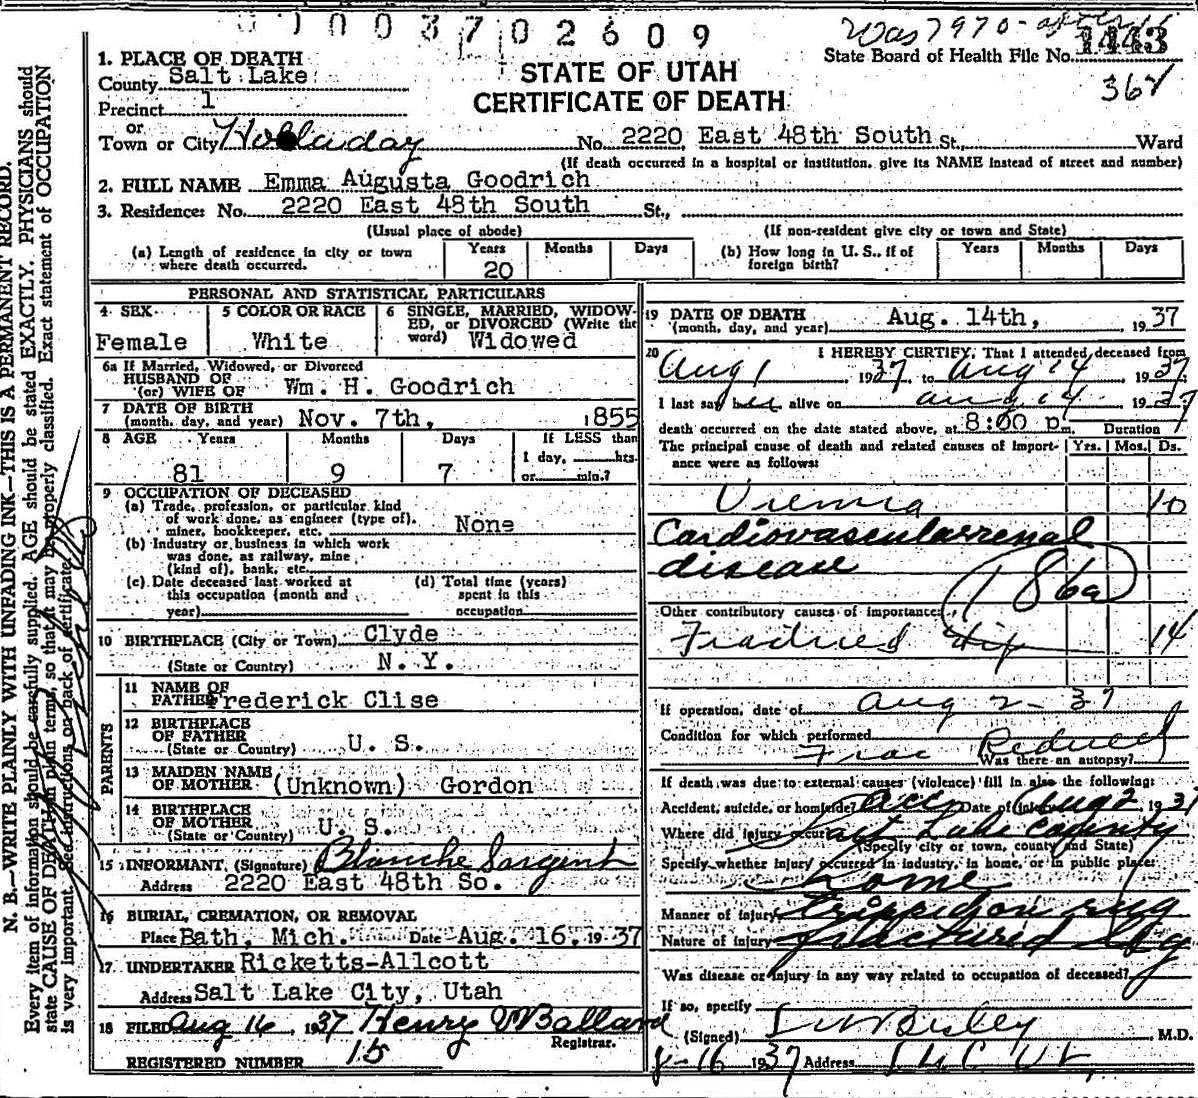 01003702609
Was 7970-after
State Board of Health File No. 1443
STATE OF UTAH
CERTIFICATE OF DEATH
1. PLACE OF DEATH
County Salt Lake
Precinct 1
or
Town or City Holladay No. 2220 East 48th South St., Ward
(If death occurred in a hospital or institution, give its NAME instead of street and number)
2. FULL NAME Emma Augusta Goodrich
3. Residence: No. 2220 East 48th South St.,
(Usual place of abode) (If non-resident give city or town and State)
(a) Length of residence in city or town where death occurred. Years 20 Months Days
(b) How long in U. S., if of foreign birth? Years Months Days
PERSONAL AND STATISTICAL PARTICULARS
4 SEX Female
5 COLOR OR RACE White
6 SINGLE, MARRIED, WIDOWED, or DIVORCED (Write the word) Widowed
6a If Married, Widowed, or Divorced
HUSBAND OF
(or) WIFE OF Wm. H. Goodrich
7 DATE OF BIRTH
(month, day, and year) Nov. 7th, 1855
8 AGE Years 81 Months 9 Days 7 If LESS than 1 day, hrs. or min.?
9 OCCUPATION OF DECEASED
(a) Trade, profession, or particular kind of work done, as engineer (type of), miner, bookkeeper, etc. None
(b) Industry or business in which work was done, as railway, mine (kind of), bank, etc.
(c) Date deceased last worked at this occupation (month and year)
(d) Total time (years) spent in this occupation
10 BIRTHPLACE (City or Town) Clyde
(State or Country) N. Y.
PARENTS
11 NAME OF FATHER Frederick Clise
12 BIRTHPLACE OF FATHER
(State or Country) U. S.
13 MAIDEN NAME OF MOTHER (Unknown) Gordon
14 BIRTHPLACE OF MOTHER
(State or Country) U. S.
15 INFORMANT, (Signature) Blanche Sargent
Address 2220 East 48th So.
16 BURIAL, CREMATION, OR REMOVAL
Place Bath, Mich. Date Aug. 16, 1937
17 UNDERTAKER Ricketts-Allcott
Address Salt Lake City, Utah
18 FILED Aug 16, 1937 Henry W Ballard
Registrar.
REGISTERED NUMBER 15
19 DATE OF DEATH
(month, day, and year) Aug. 14th, 1937
20 I HEREBY CERTIFY, That I attended deceased from
Aug 1 1937, to Aug 14 1937
I last saw her alive on Aug 14 1937
death occurred on the date stated above, at 8:00 p.m. Duration
The principal cause of death and related causes of importance were as follows: Yrs. Mos. Ds.
Uremia 10
Cardiovascularrenal
disease
186a
Other contributory causes of importance:
Fractured Hip 14
If operation, date of Aug 2-37
Condition for which performed
Frac Reduced
Was there an autopsy?
If death was due to external causes (violence) fill in also the following:
Accident, suicide, or homicide? Acc Date of injury Aug 2 1937
Where did injury occur? Salt Lake County
(Specify city or town, county and State)
Specify whether injury occurred in industry, in home, or in public place:
home
Manner of injury Tripped on rug
Nature of injury fractured leg
Was disease or injury in any way related to occupation of deceased?
If so, specify
(Signed) M.D.
8-16 1937 Address S. L. C. Ut.
N. B.—WRITE PLAINLY WITH UNFADING INK—THIS IS A PERMANENT RECORD.
Every item of information should be carefully supplied. AGE should be stated EXACTLY. PHYSICIANS should
state CAUSE OF DEATH in plain terms, so that it may be properly classified. Exact statement of OCCUPATION
is very important. See instructions on back of certificate.